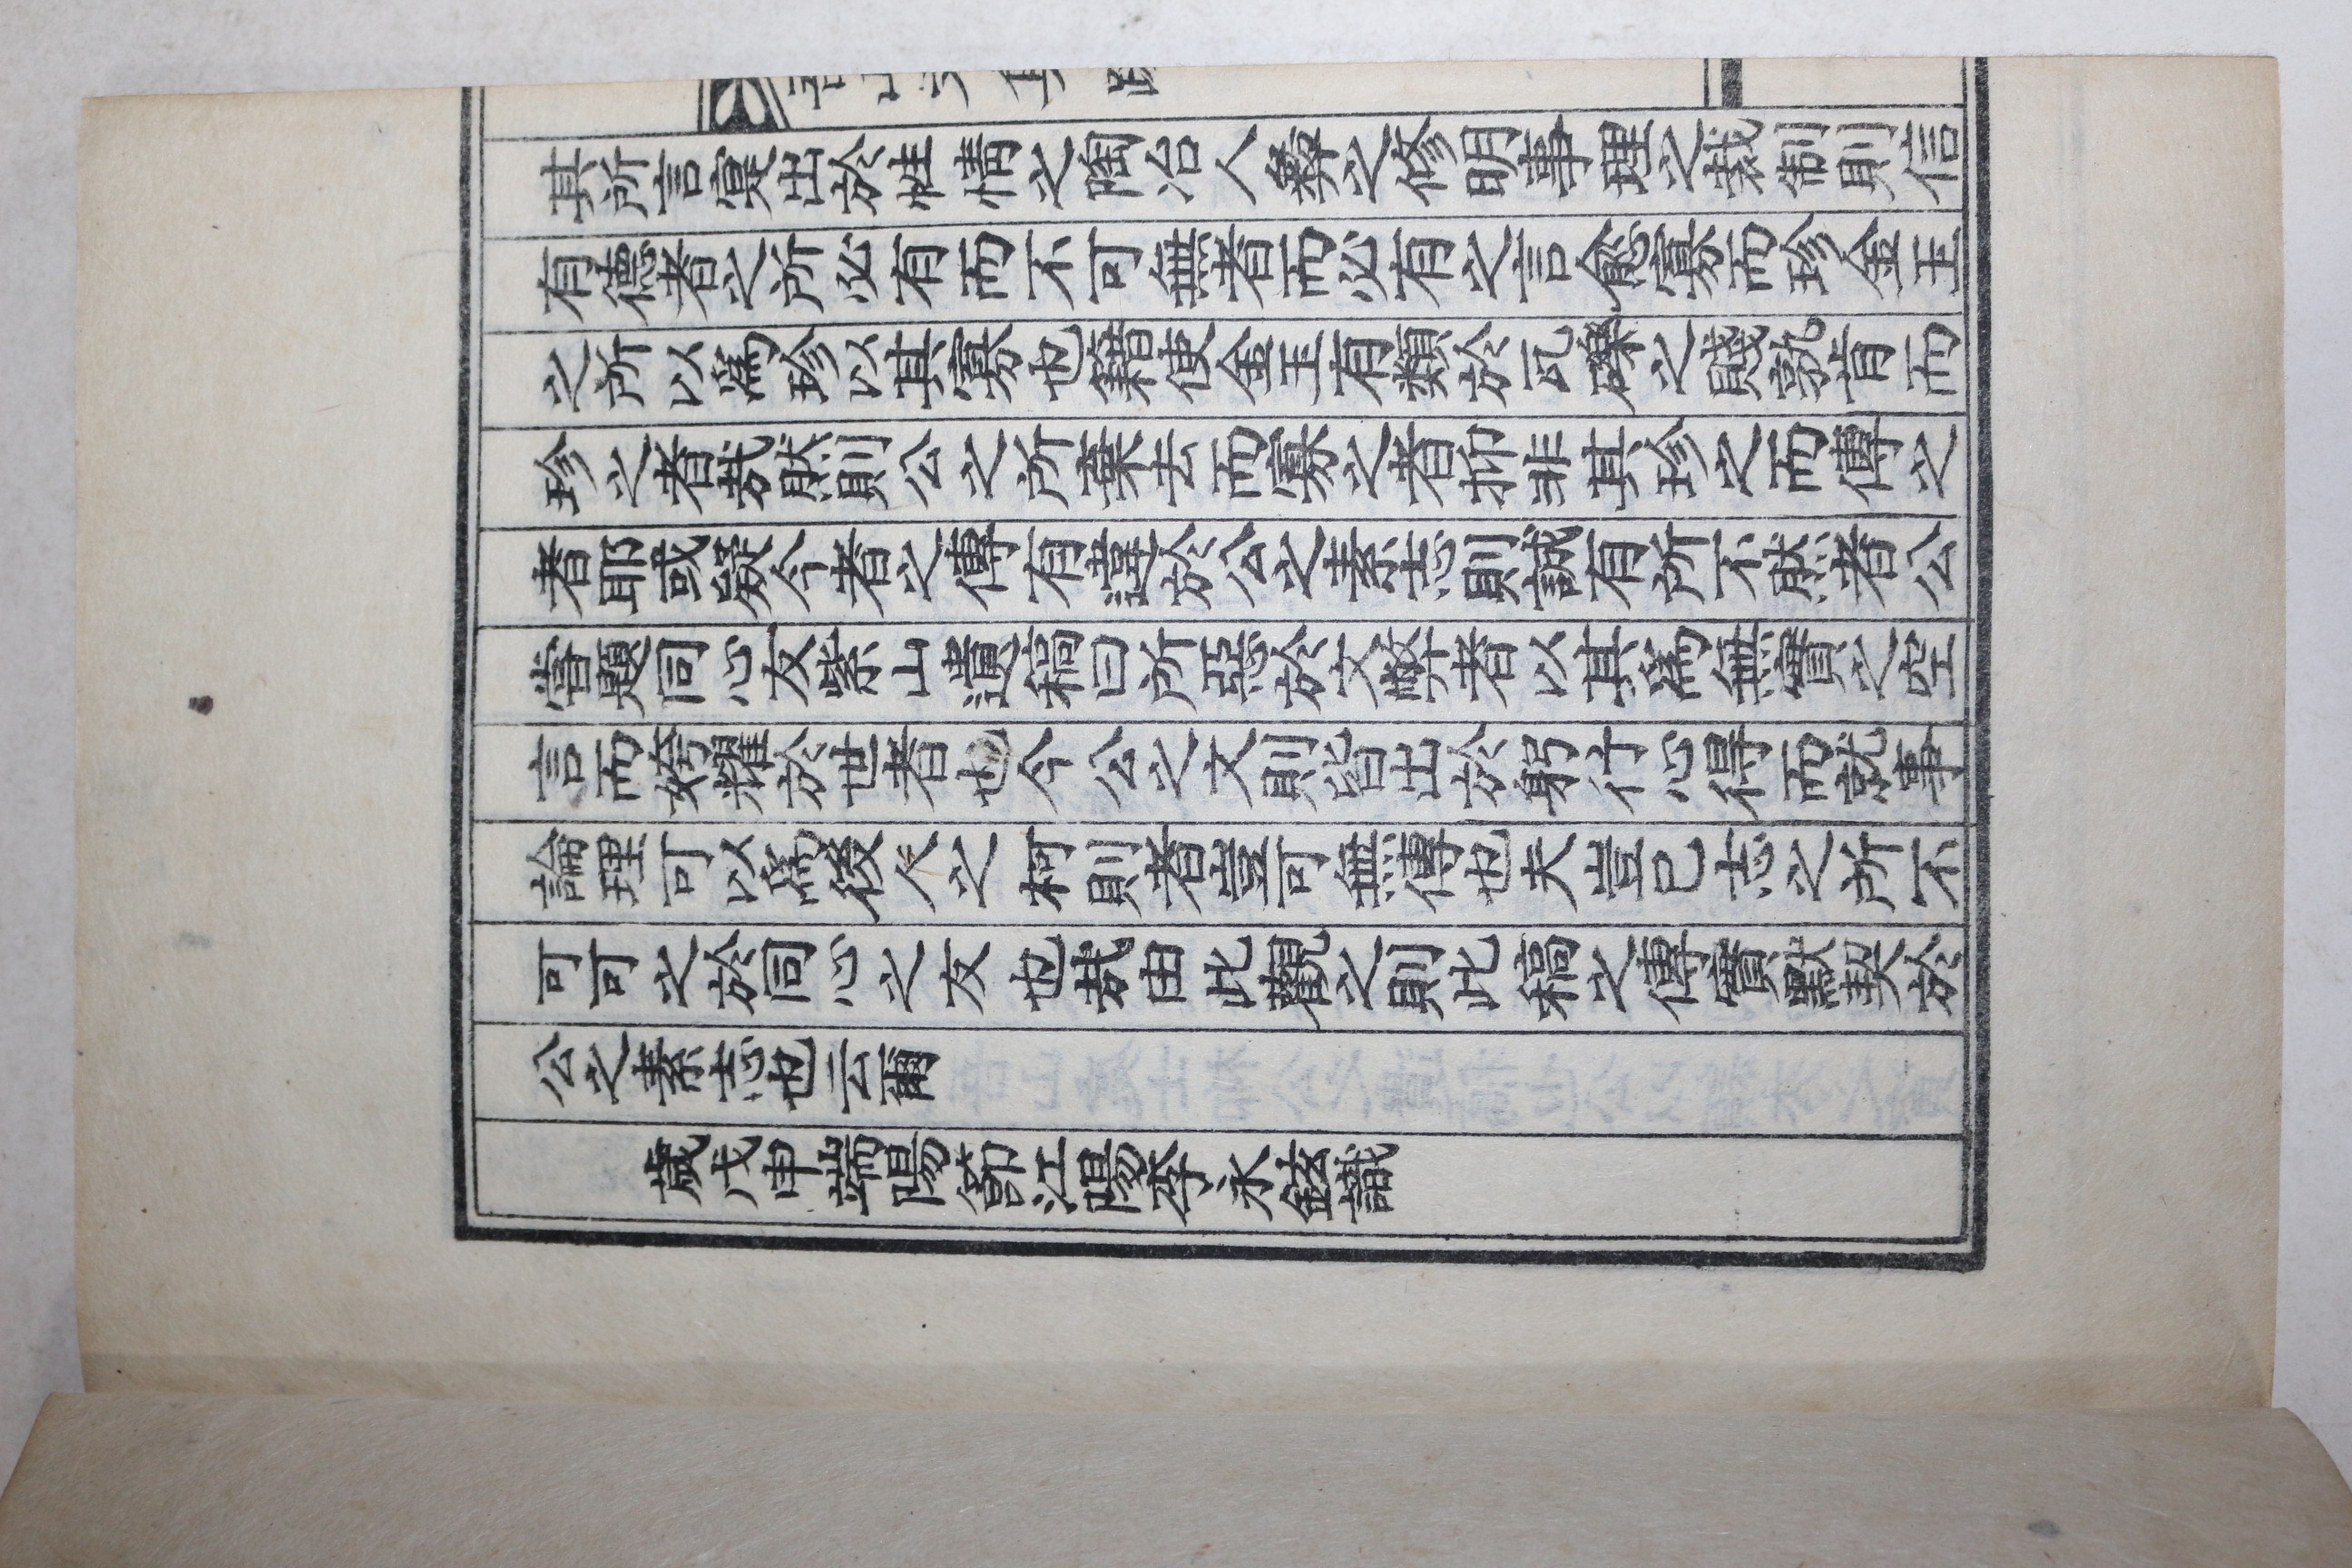 其所言寔出於性情之陶冶人彜之修明事理之裁制則信
有德者之所必有而不可無者而必有之言愈寡而珍金玉
之所以爲珍以其寡也籍使金玉有類於瓦礫之賤孰肯而
珍之者哉然則公之所棄去而寡之者抑非其珍之而傳之
者耶或疑今者之傳有違於公之素志則誠有所不然者公
嘗題同心友紫山遺稿曰所惡於文辭者以其爲無實之空
言而夸耀於世者也今公之文則皆出於躬行心得而就事
論理可以爲後人之柯則者豈可無傳也夫豈己志之所不
可可之於同心之友也哉由此觀之則此稿之傳實默契於
公之素志也云爾
歲戊申端陽節江陽李永鉉識